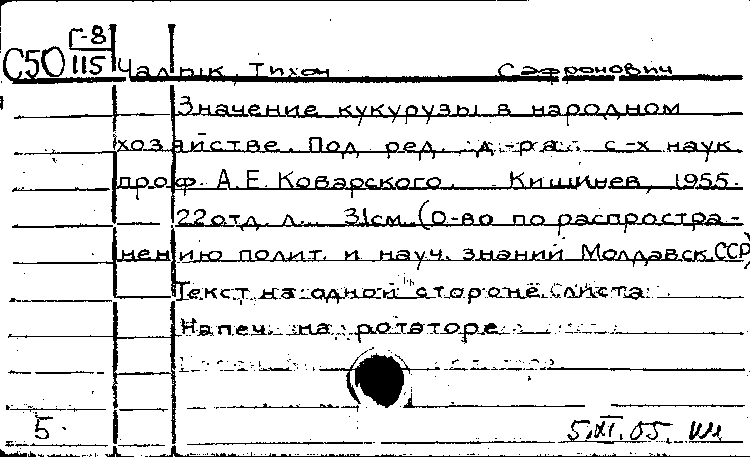 Г-8
С50 115 Чалык, Тихон Сафронович
Значение кукурузы в народном
хозяйстве. Под ред. д-ра с-х наук
проф. А.Е. Коварского. Кишинев, 1955.
22 отд. л. 31см. (О-во по распростра-
нению полит. и науч. знаний Молдавск. ССР)
Текст на одной стороне листа
Напеч. на ротаторе
5. 5.XI.05.